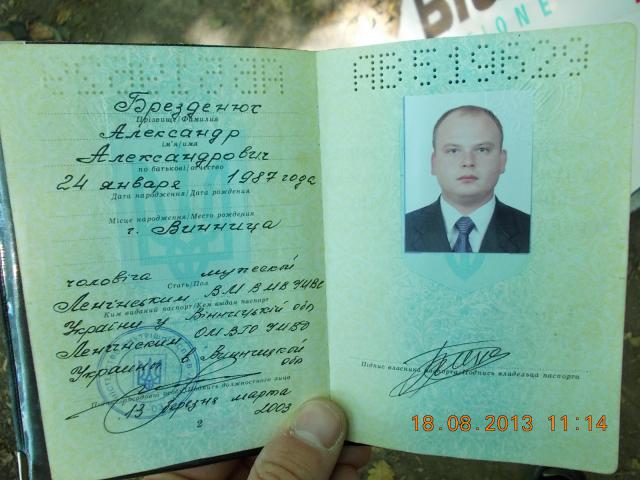 АВ519629
Брезденюс
Прізвище/Фамилия
Александр
ім'я/имя
Александрович
по батькові/отчество
24 января 1987 года
Дата народження/Дата рождения
Місце народження/Место рождения
г. Винница
чоловіча мужской
Стать/Пол
Ленінським ВМ ВМВ УМВС
Ким виданий паспорт/Кем выдан паспорт
України у Вінницькій обл
Ленинским ОМ ВГО УМВД
Украины в Винницкой
обл
13 березня марта
2003
2
Підпис власника паспорта/Подпись владельца паспорта
18.08.2013 11:14